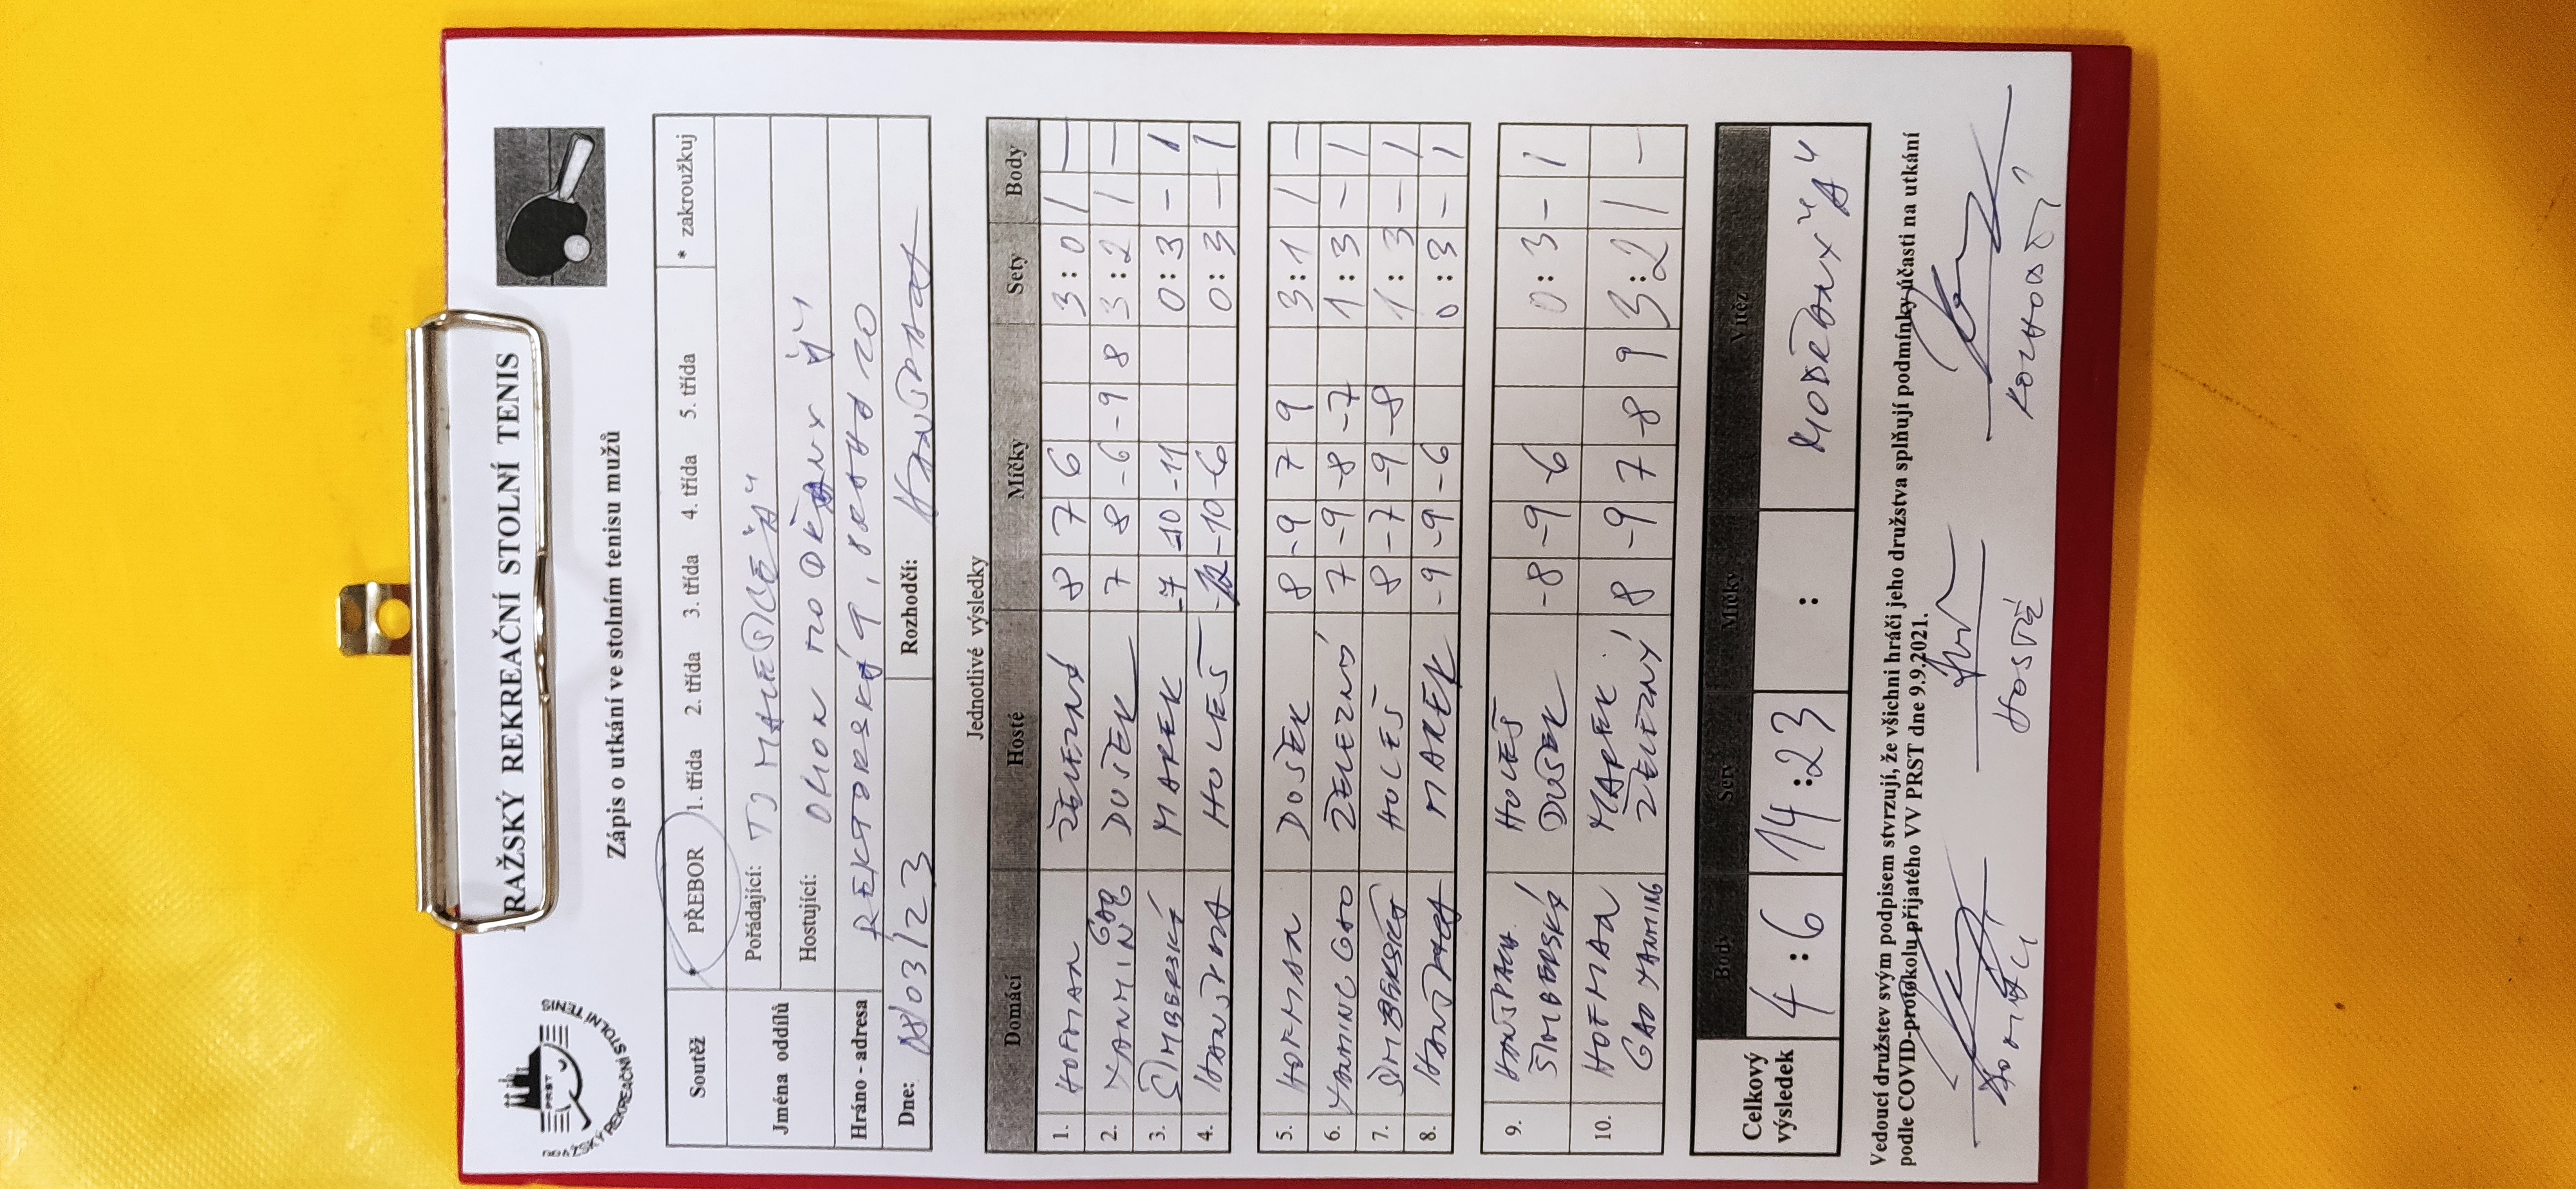 PRAŽSKÝ REKREAČNÍ STOLNÍ TENIS
PRST
PRAŽSKÝ REKREAČNÍ STOLNÍ TENIS
Zápis o utkání ve stolním tenisu mužů
Soutěž * PŘEBOR 1. třída 2. třída 3. třída 4. třída 5. třída * zakroužkuj
Jména oddílů Pořádající: TJ MALEŠICE "A"
Hostující: ORION MODŘANY "A"
Hráno - adresa REKTORSKÁ 9, PRAHA 10
Dne: 08/03/23 Rozhodčí: HANŠPACH
Jednotlivé výsledky
Domácí Hosté Míčky Sety Body
1. HOFMAN ŽELEZNÝ 8 7 6 3:0 1 –
2. YANMING GAO DUŠEK 7 8 -6 -9 8 3:2 1 –
3. ŠIMBERSKÝ MAREK -7 -10 -11 0:3 – 1
4. HANŠPACH HOLEŠ -12 -10 -6 0:3 – 1
5. HOFMAN DUŠEK 8 -9 7 9 3:1 1 –
6. YANMING GAO ŽELEZNÝ 7 -9 -8 -7 1:3 – 1
7. ŠIMBERSKÝ HOLEŠ 8 -7 -9 -8 1:3 – 1
8. HANŠPACH MAREK -9 -9 -6 0:3 – 1
9. HANŠPACH HOLEŠ
ŠIMBERSKÝ DUŠEK -8 -9 -6 0:3 – 1
10. HOFMAN MAREK
GAO YANMING ŽELEZNÝ 8 -9 7 -8 9 3:2 1 –
Celkový výsledek
Body Sety Míčky Vítěz
4:6 14:23 : MODŘANY "A"
Vedoucí družstev svým podpisem stvrzují, že všichni hráči jeho družstva splňují podmínky účasti na utkání
podle COVID-protokolu přijatého VV PRST dne 9.9.2021.
DOMÁCÍ HOSTÉ ROZHODČÍ